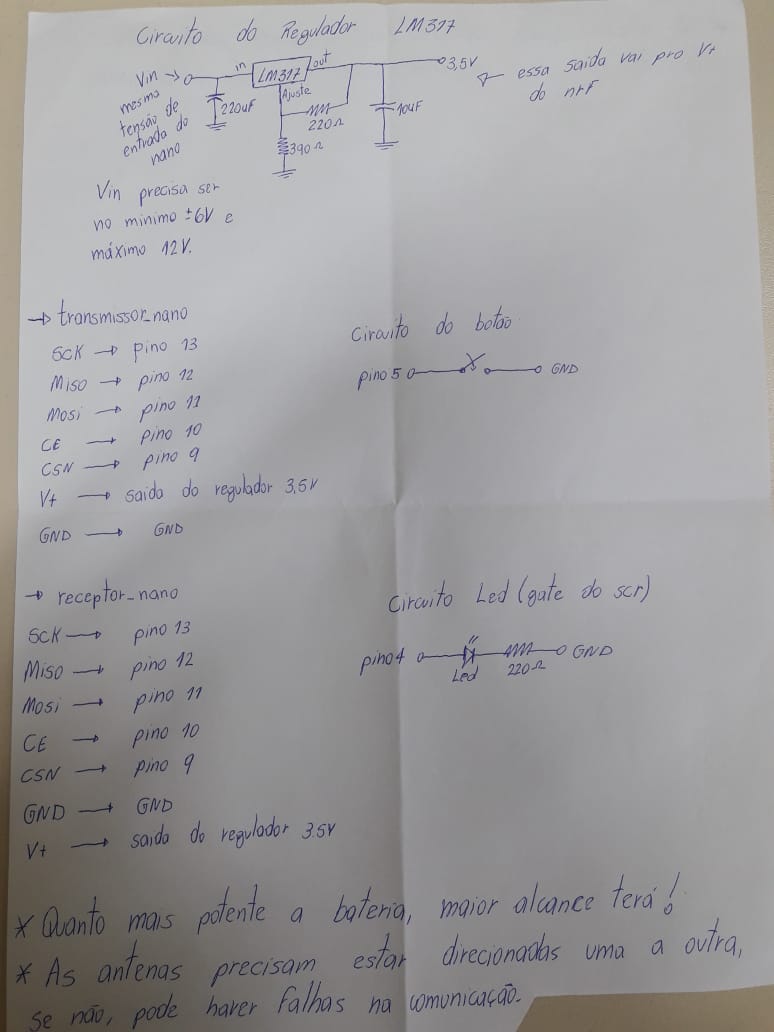 Circuito do Regulador LM317
Vin → in LM317 out 3,5V
mesma tensão de entrada do nano
220uF
Ajuste
220Ω
390Ω
10uF
essa saida vai pro V+
do nrf
Vin precisa ser
no minimo ±6V e
máximo 12V.
→ transmissor_nano
SCK → pino 13
Miso → pino 12
Mosi → pino 11
CE → pino 10
CSN → pino 9
V+ → saida do regulador 3,5V
GND → GND
Circuito do botão
pino 5 GND
→ receptor_nano
SCK → pino 13
Miso → pino 12
Mosi → pino 11
CE → pino 10
CSN → pino 9
GND → GND
V+ → saida do regulador 3.5V
Circuito Led (gate do scr)
pino 4 Led 220Ω GND
* Quanto mais potente a bateria, maior alcance terá!
* As antenas precisam estar direcionadas uma a outra,
se não, pode haver falhas na comunicação.